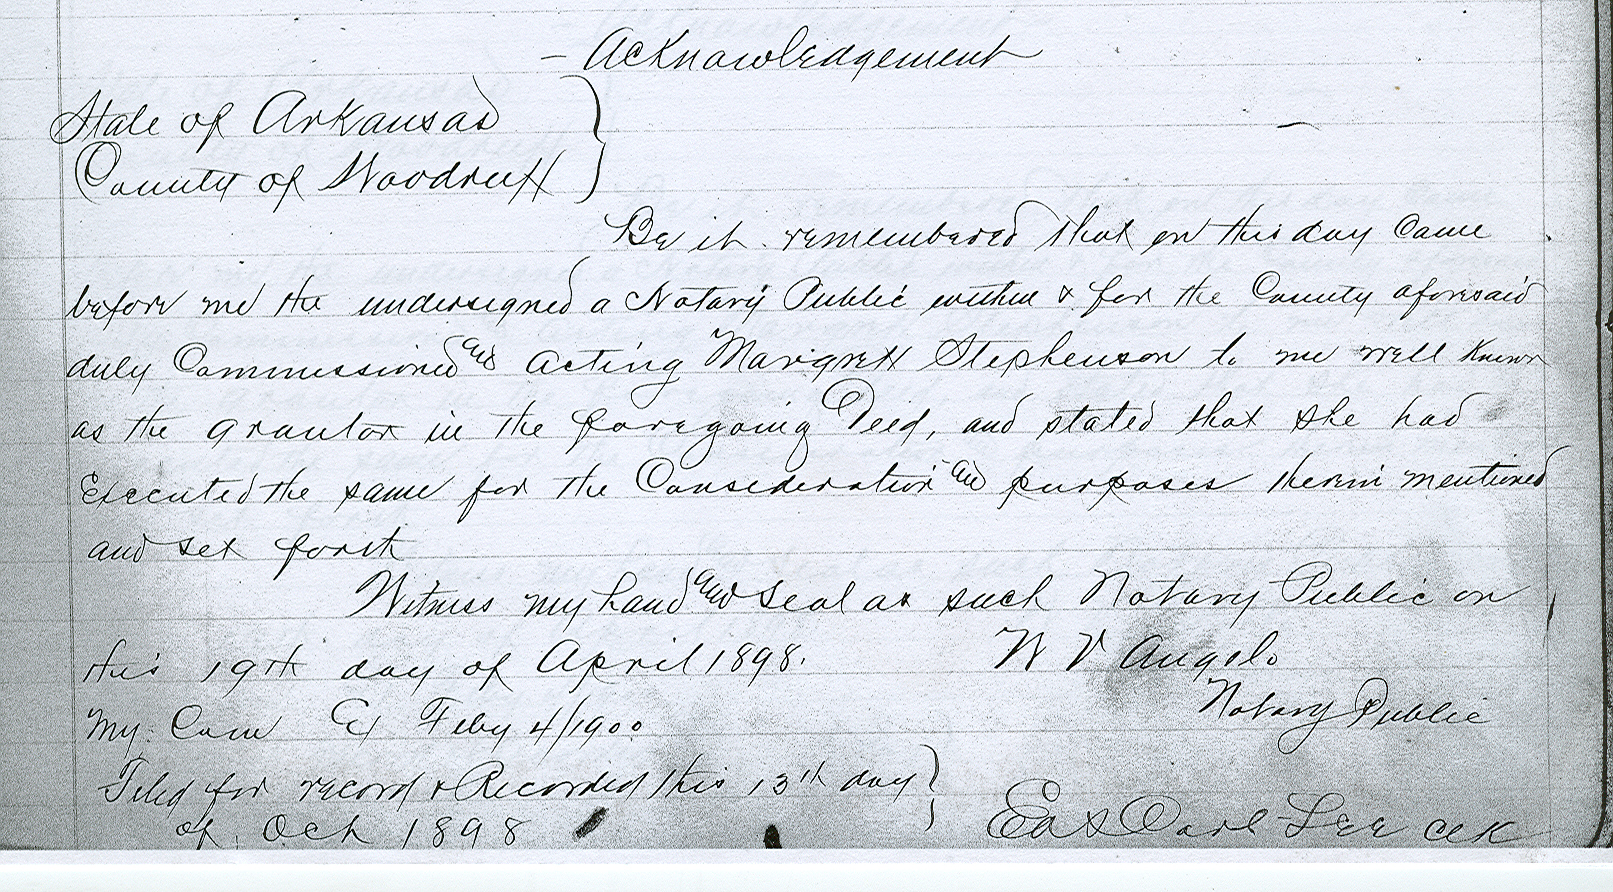 - Acknowledgement
State of Arkansas
County of Woodruff
Be it remembered that on this day Came
before me the undersigned a Notary Public within & for the County aforesaid
duly Commissioned and acting Margrett Stephenson to me well known
as the grantor in the foregoing Deed, and stated that she had
Executed the same for the Consideration and purposes therein mentioned
and set forth
Witness my hand and seal as such Notary Public on
this 19th day of April 1898.
W V Angelo
Notary Public
My Com Ex Feby 4/1900
Filed for record & Recorded this 13th day
of Oct 1898
Lee